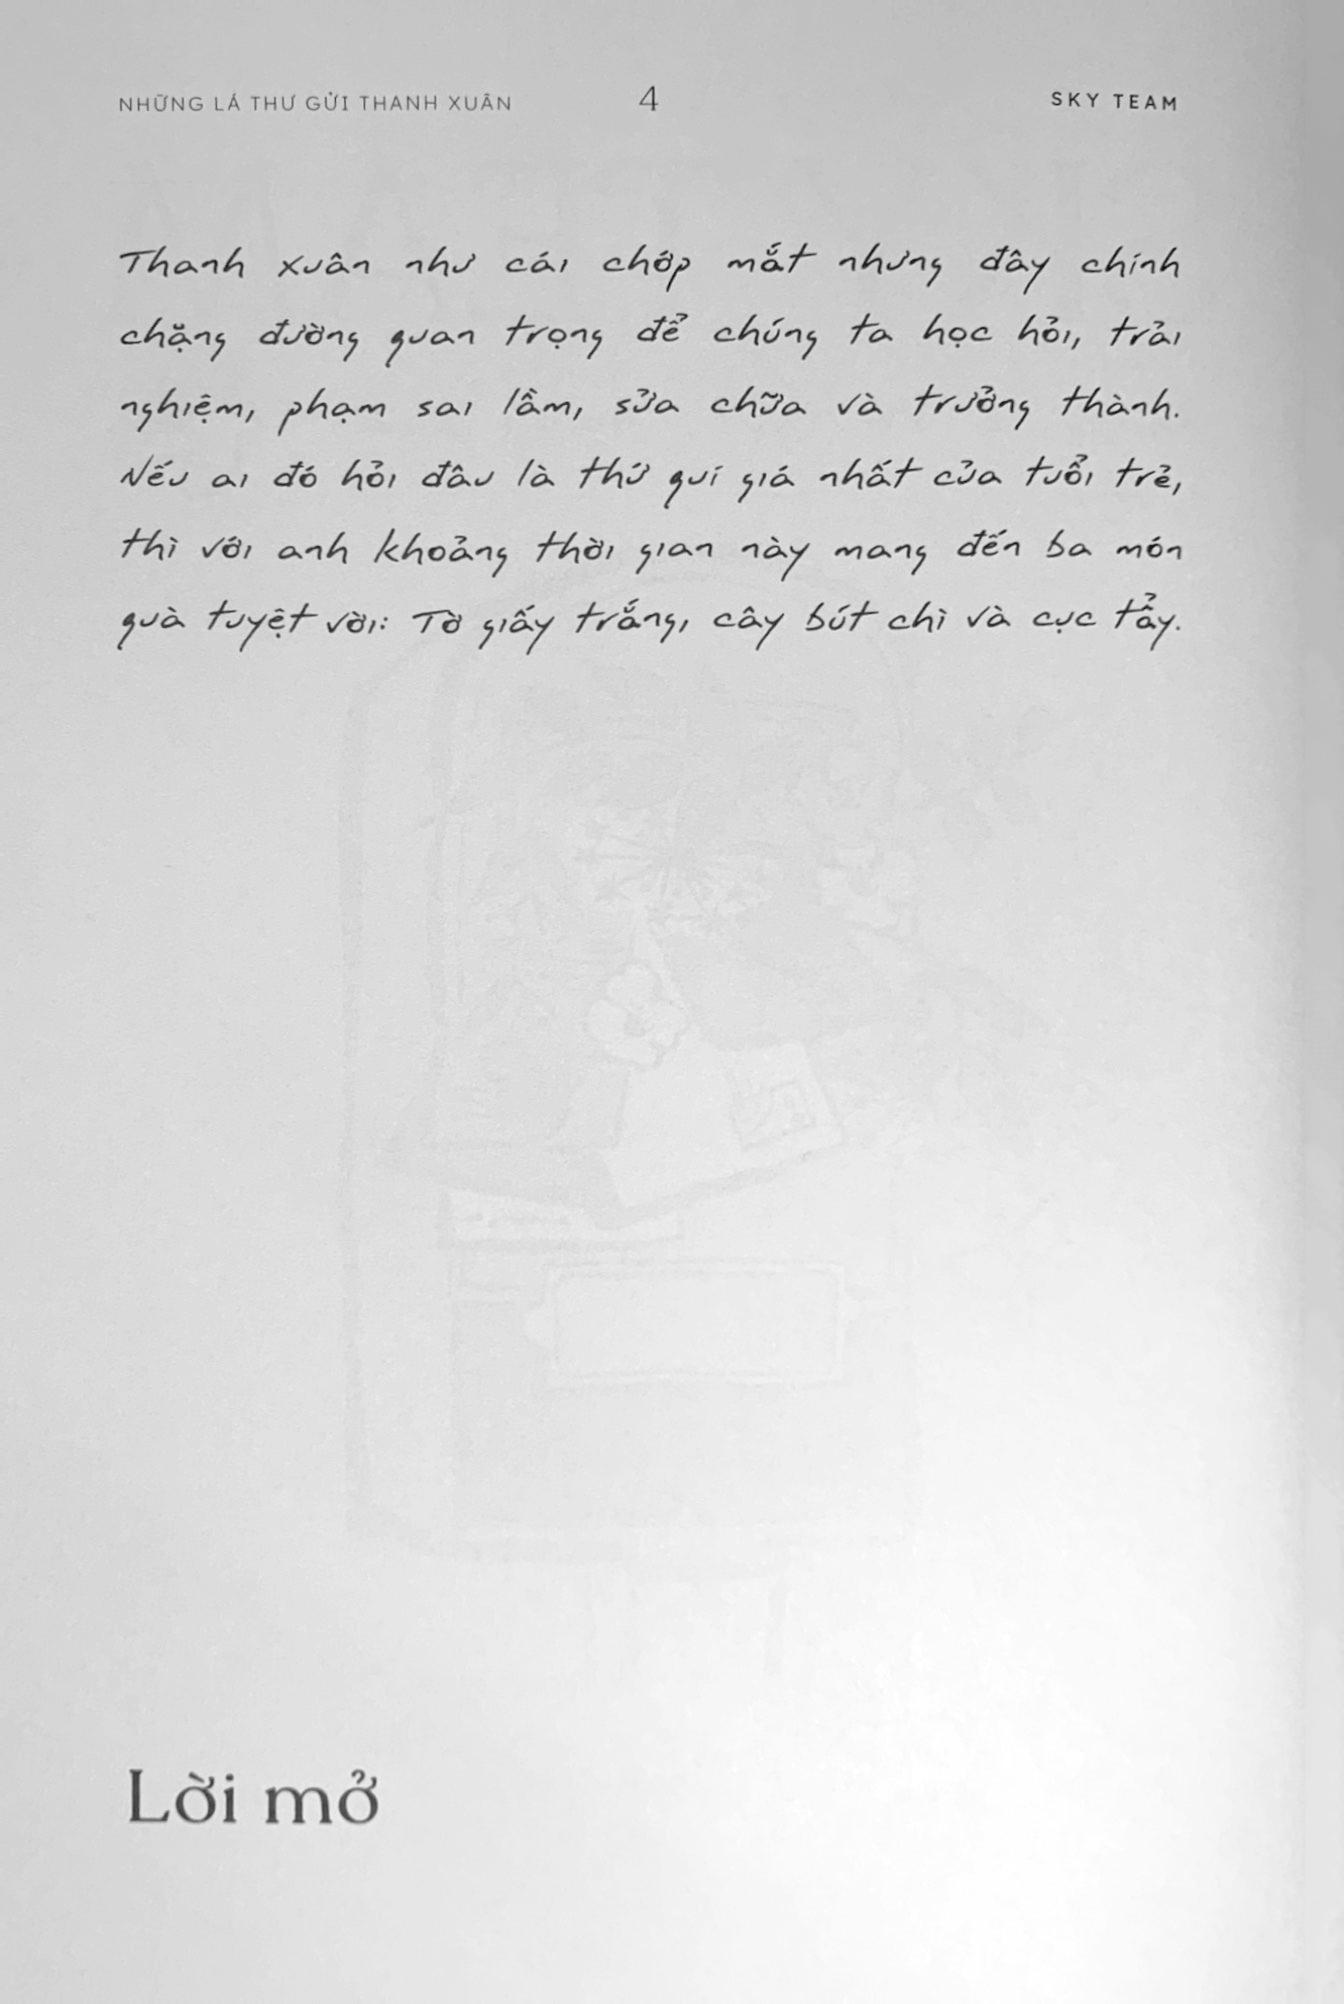 NHỮNG LÁ THƯ GỬI THANH XUÂN 4 SKY TEAM
Thanh xuân như cái chớp mắt nhưng đây chính
chặng đường quan trọng để chúng ta học hỏi, trải
nghiệm, phạm sai lầm, sửa chữa và trưởng thành.
Nếu ai đó hỏi đâu là thứ quí giá nhất của tuổi trẻ,
thì với anh khoảng thời gian này mang đến ba món
quà tuyệt vời: Tờ giấy trắng, cây bút chì và cục tẩy.
Lời mở